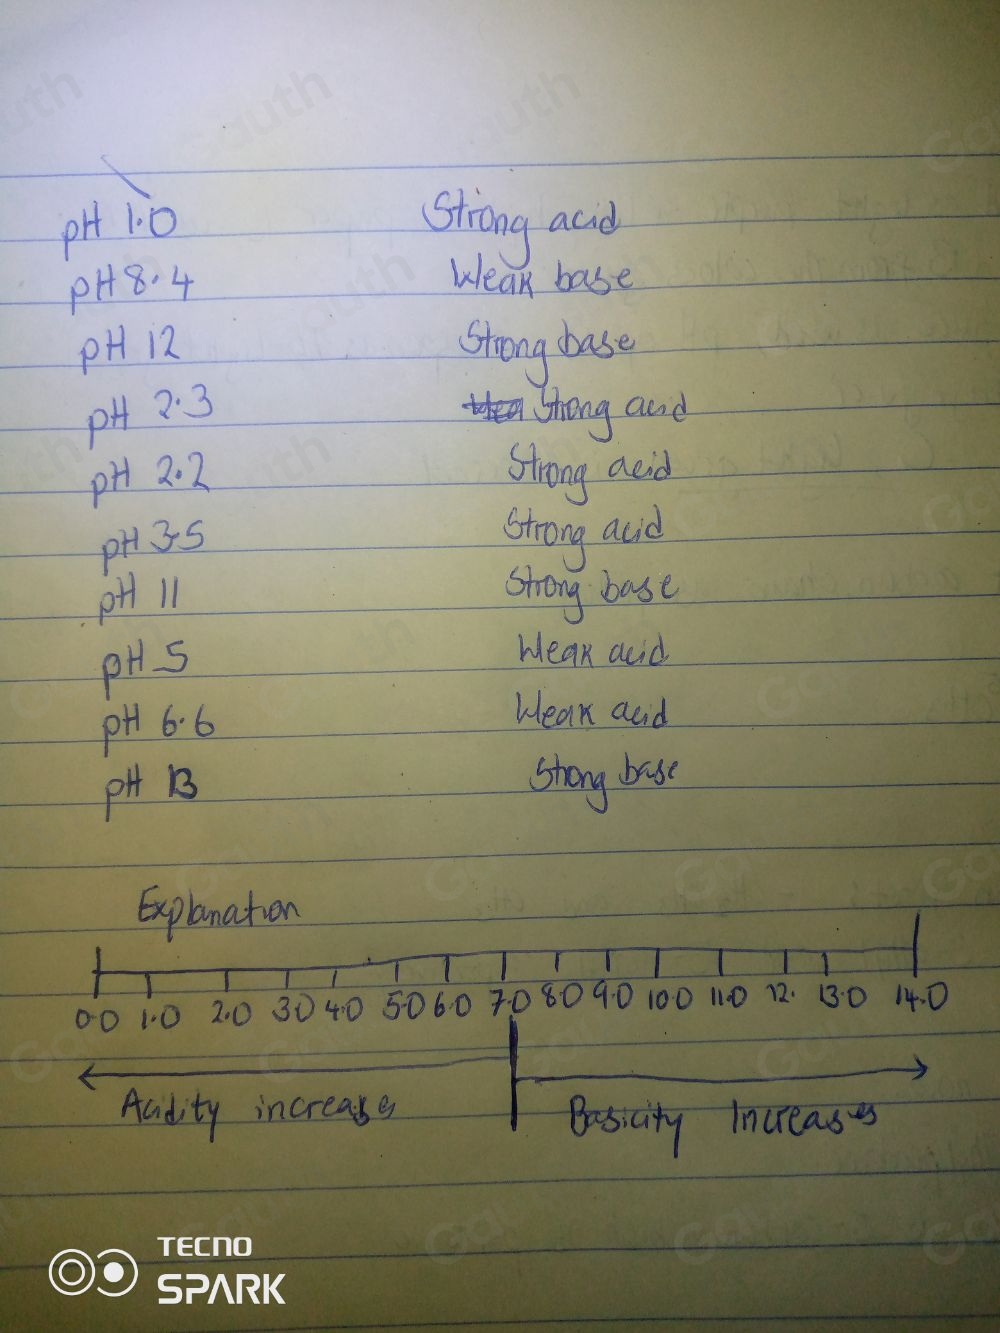 pH 1.0 Strong acid
pH 8.4 Weak base
pH 12 Strong base
pH 2.3 Strong acid
pH 2.2 Strong acid
pH 3.5 Strong acid
pH 11 Strong base
pH 5 Weak acid
pH 6.6 Weak acid
pH 13 Strong base
Explanation
0.0 1.0 2.0 3.0 4.0 5.0 6.0 7.0 8.0 9.0 10.0 11.0 12. 13.0 14.0
Acidity increases
Basicity Increases
TECNO
SPARK